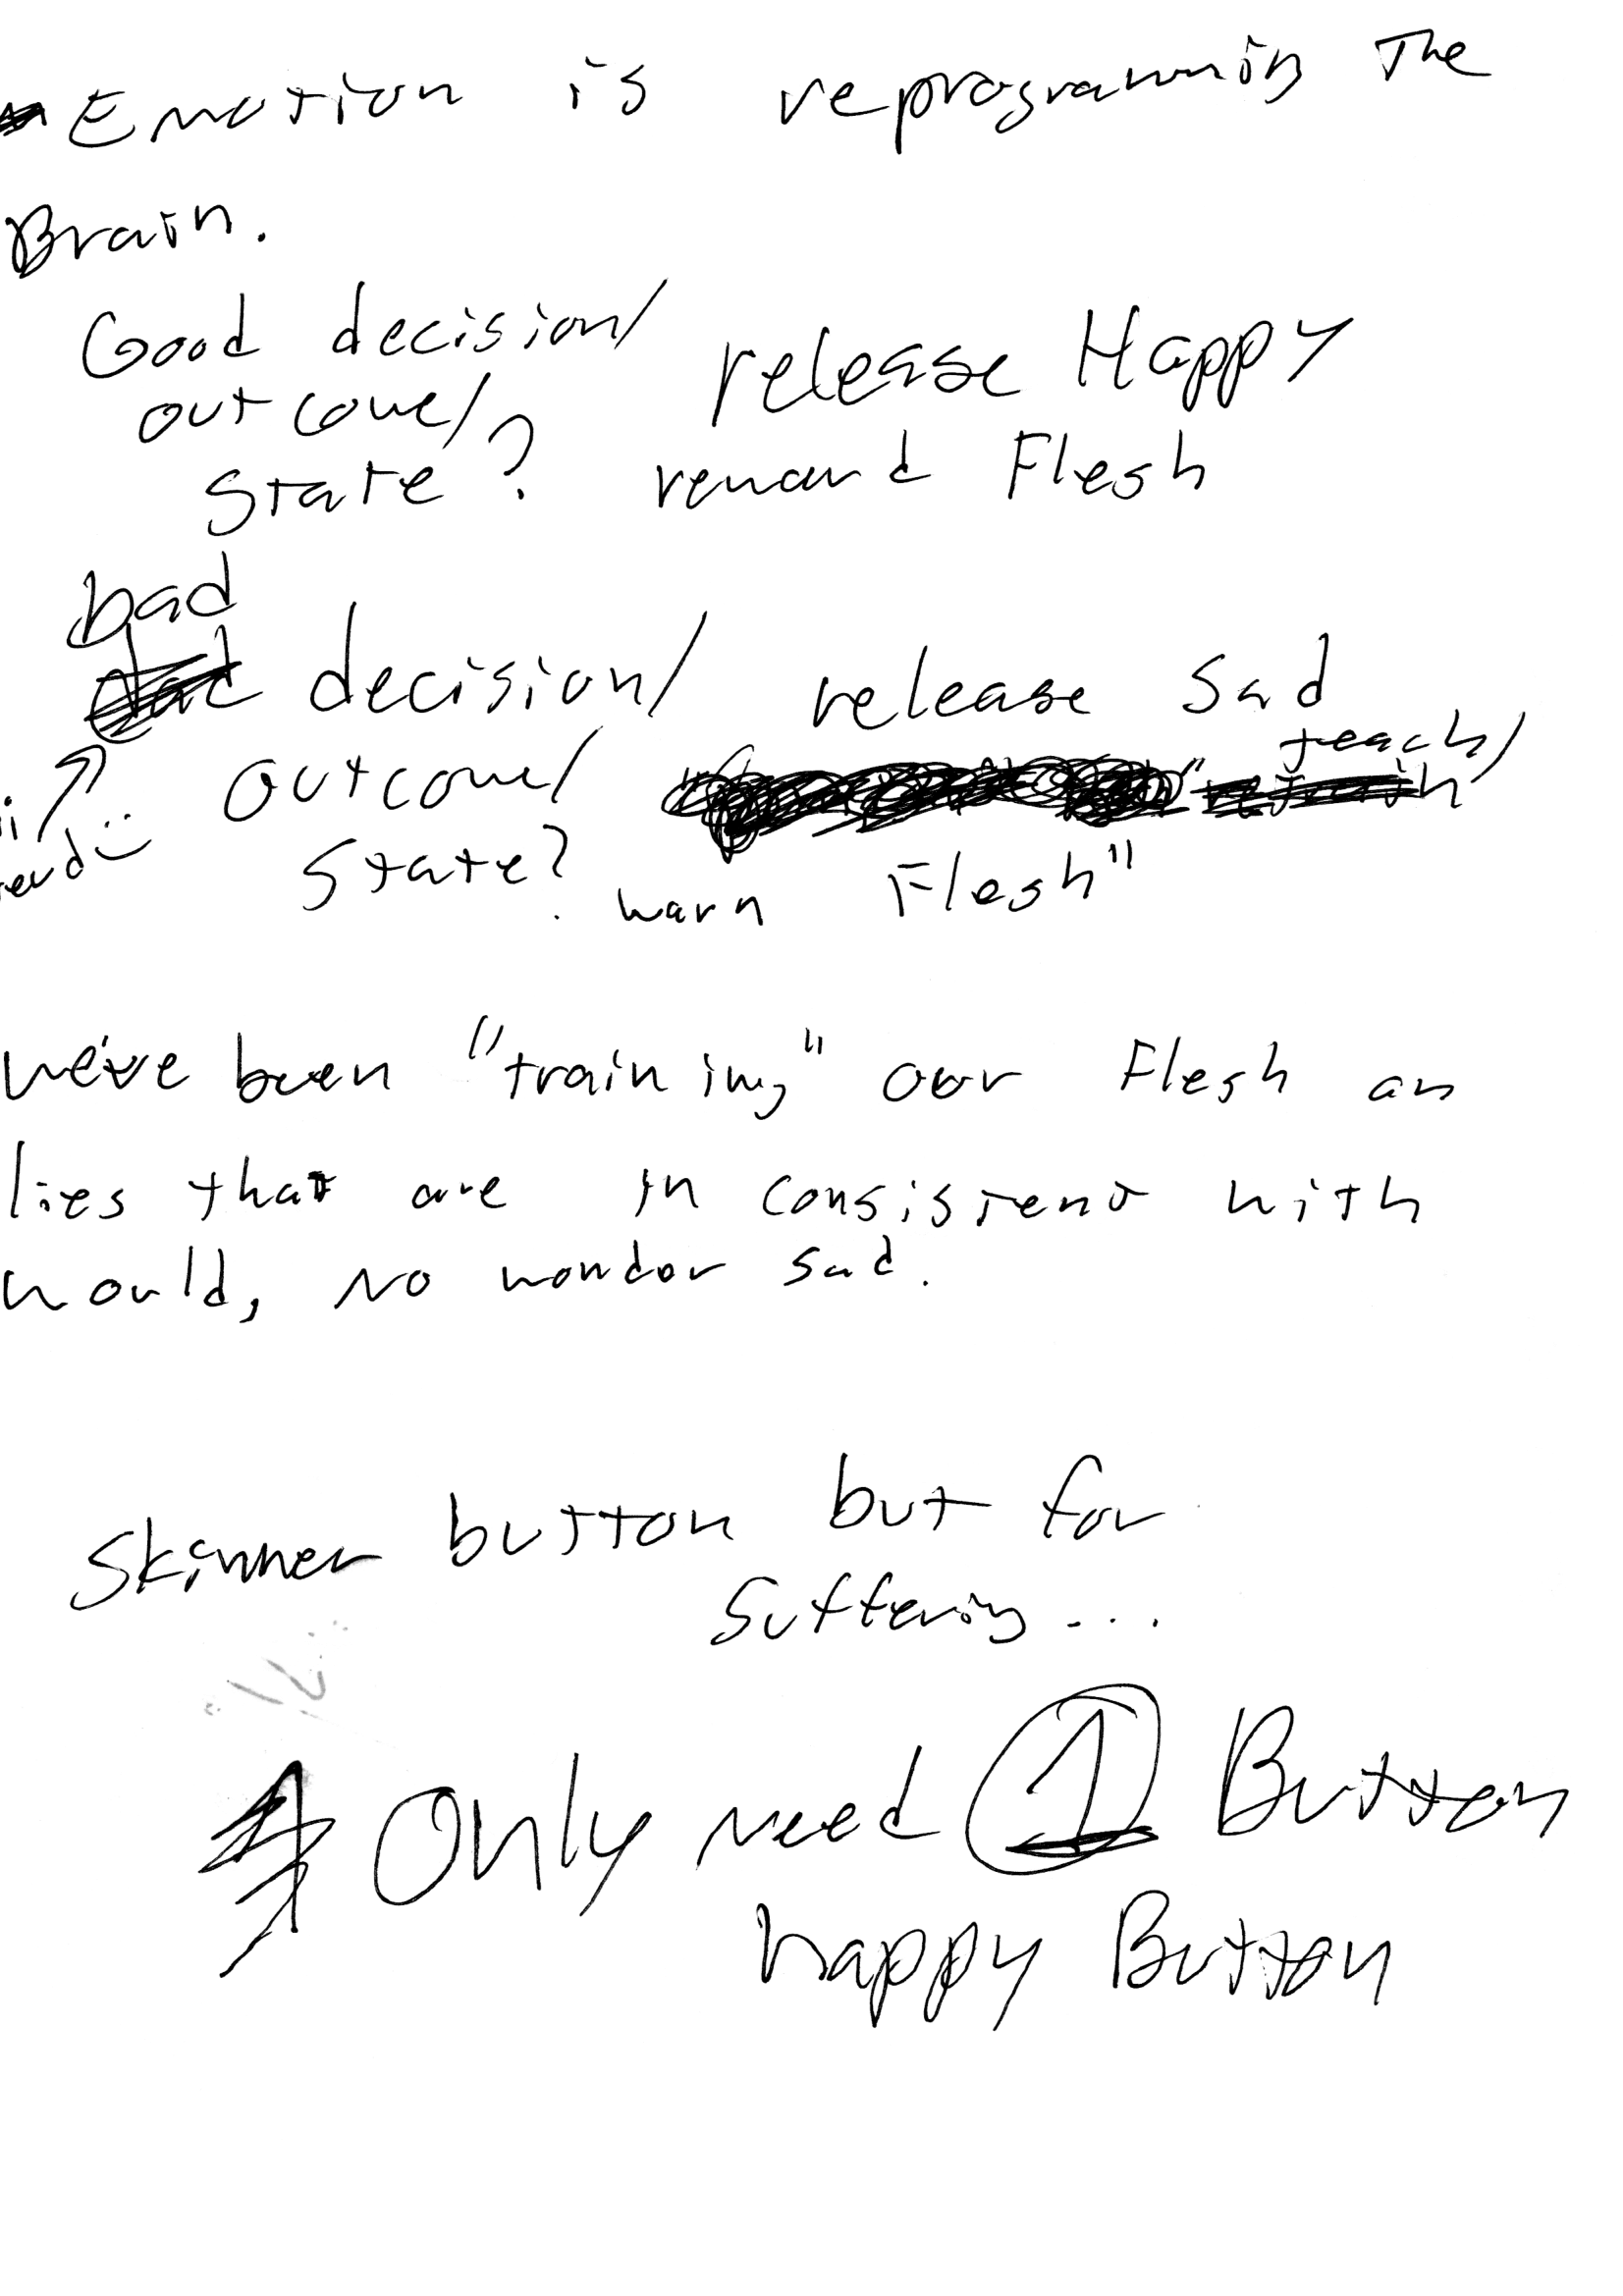 Emotion is reprogramming The
Brain.
Good decision/ release Happy
outcome/
state? reward Flesh
bad
decision/ release sad
outcome/ teach/
state? warn Flesh"
we've been "training" our Flesh on
lies that are in consistent with
would, No wonder sad.
Skinner button but for
suffering...
Only need 1 Button
happy Button